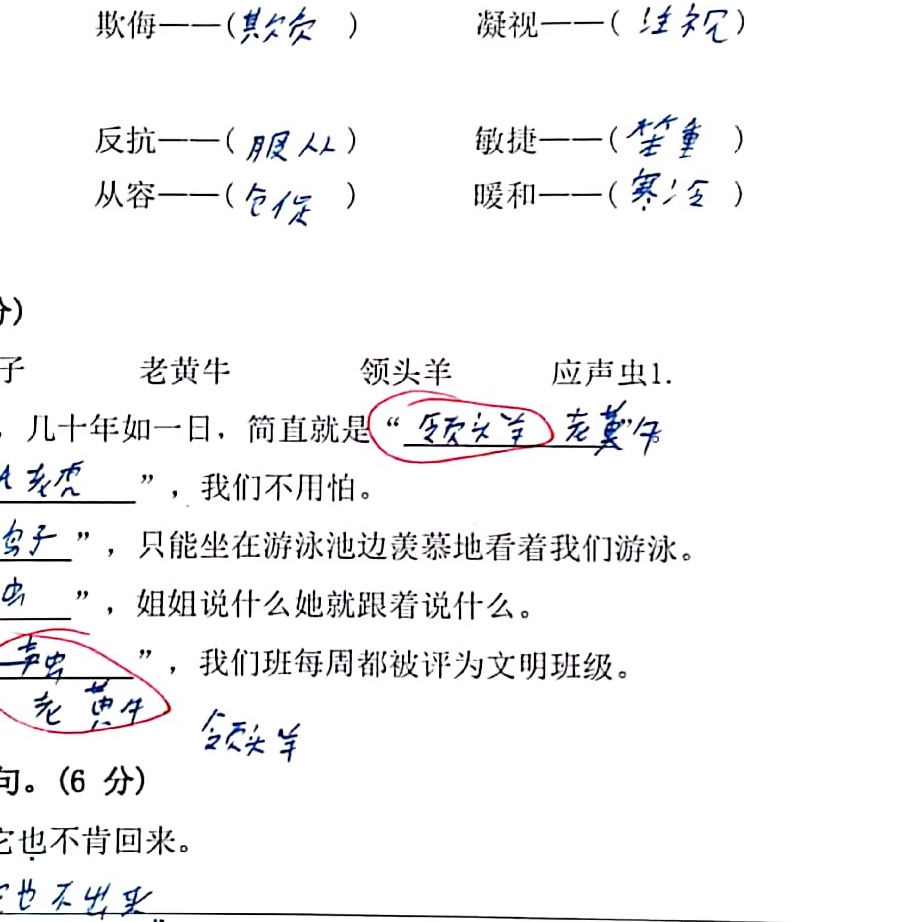 欺侮——(欺负 ) 凝视——(注视)
反抗——(服从) 敏捷——(笨重 )
从容——(仓促 ) 暖和——(寒冷 )
分)
子 老黄牛 领头羊 应声虫1.
，几十年如一日，简直就是“领头羊 老黄牛”。
老虎”，我们不用怕。
鸟子”，只能坐在游泳池边羡慕地看着我们游泳。
虫”，姐姐说什么她就跟着说什么。
声虫”，我们班每周都被评为文明班级。
老黄牛
领头羊
句。(6 分)
它也不肯回来。
它也不出来